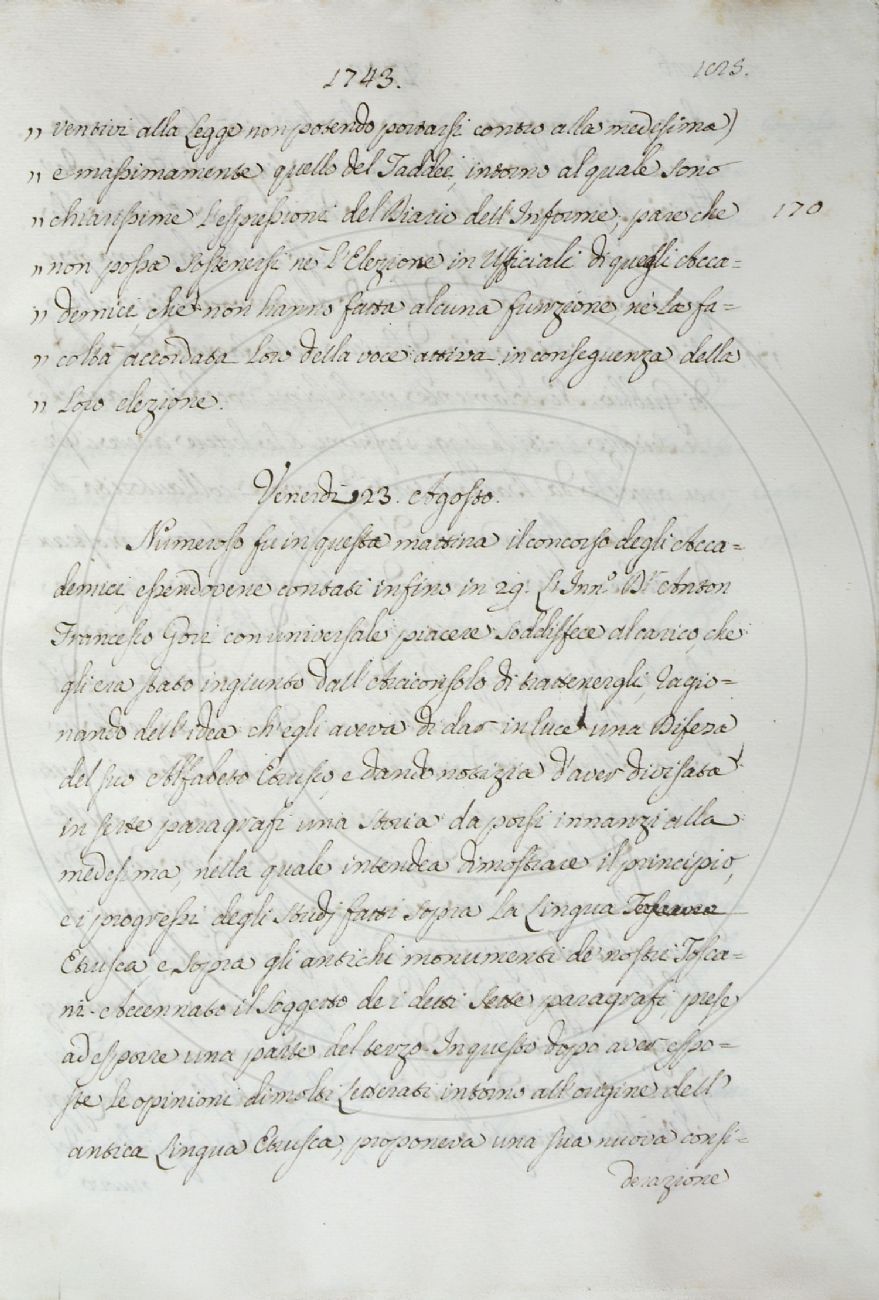 1743.
„ ventivi alla Legge non potendo portarsi contro alla medesima)
„ e massimamente quello del Taddei, intorno al quale sono
„ chiarissime l'espressioni del Diario dell'Informe, pare che
170
„ non possa sostenersi nè l'Elezione in Ufficiali di quegli Acca=
„ demici, che non hanno fatta alcuna funzione, nè la fa=
„ coltà accordata loro della voce attiva in conseguenza della
„ loro elezione.
Venerdì 23. Agosto.
Numeroso fu in questa mattina il concorso degli Acca=
demici, essendovene contati infino in 29. Il Inn.º D.r Anton
Francesco Gori con universale piacere soddisfece al carico, che
gli era stato ingiunto dall'Arciconsolo di trattenergli, ragio=
nando dell'idea ch'egli aveva di dar in luce una Difesa
del suo Alfabeto Etrusco, e dando notizia d'aver divisata
in sette paragrafi una storia da porsi innanzi alla
medesima, nella quale intendea dimostrare il principio,
e i progressi degli studj fatti sopra la Lingua
Etrusca, e sopra gli antichi monumenti de' nostri Tosca=
ni. Accennato il soggetto de i detti sette paragrafi, prese
ad esporre una parte del terzo. In questo dopo aver espo=
ste le opinioni di molti Letterati intorno all'origine dell'
antica Lingua Etrusca, proponeva una sua nuova consi=
derazione